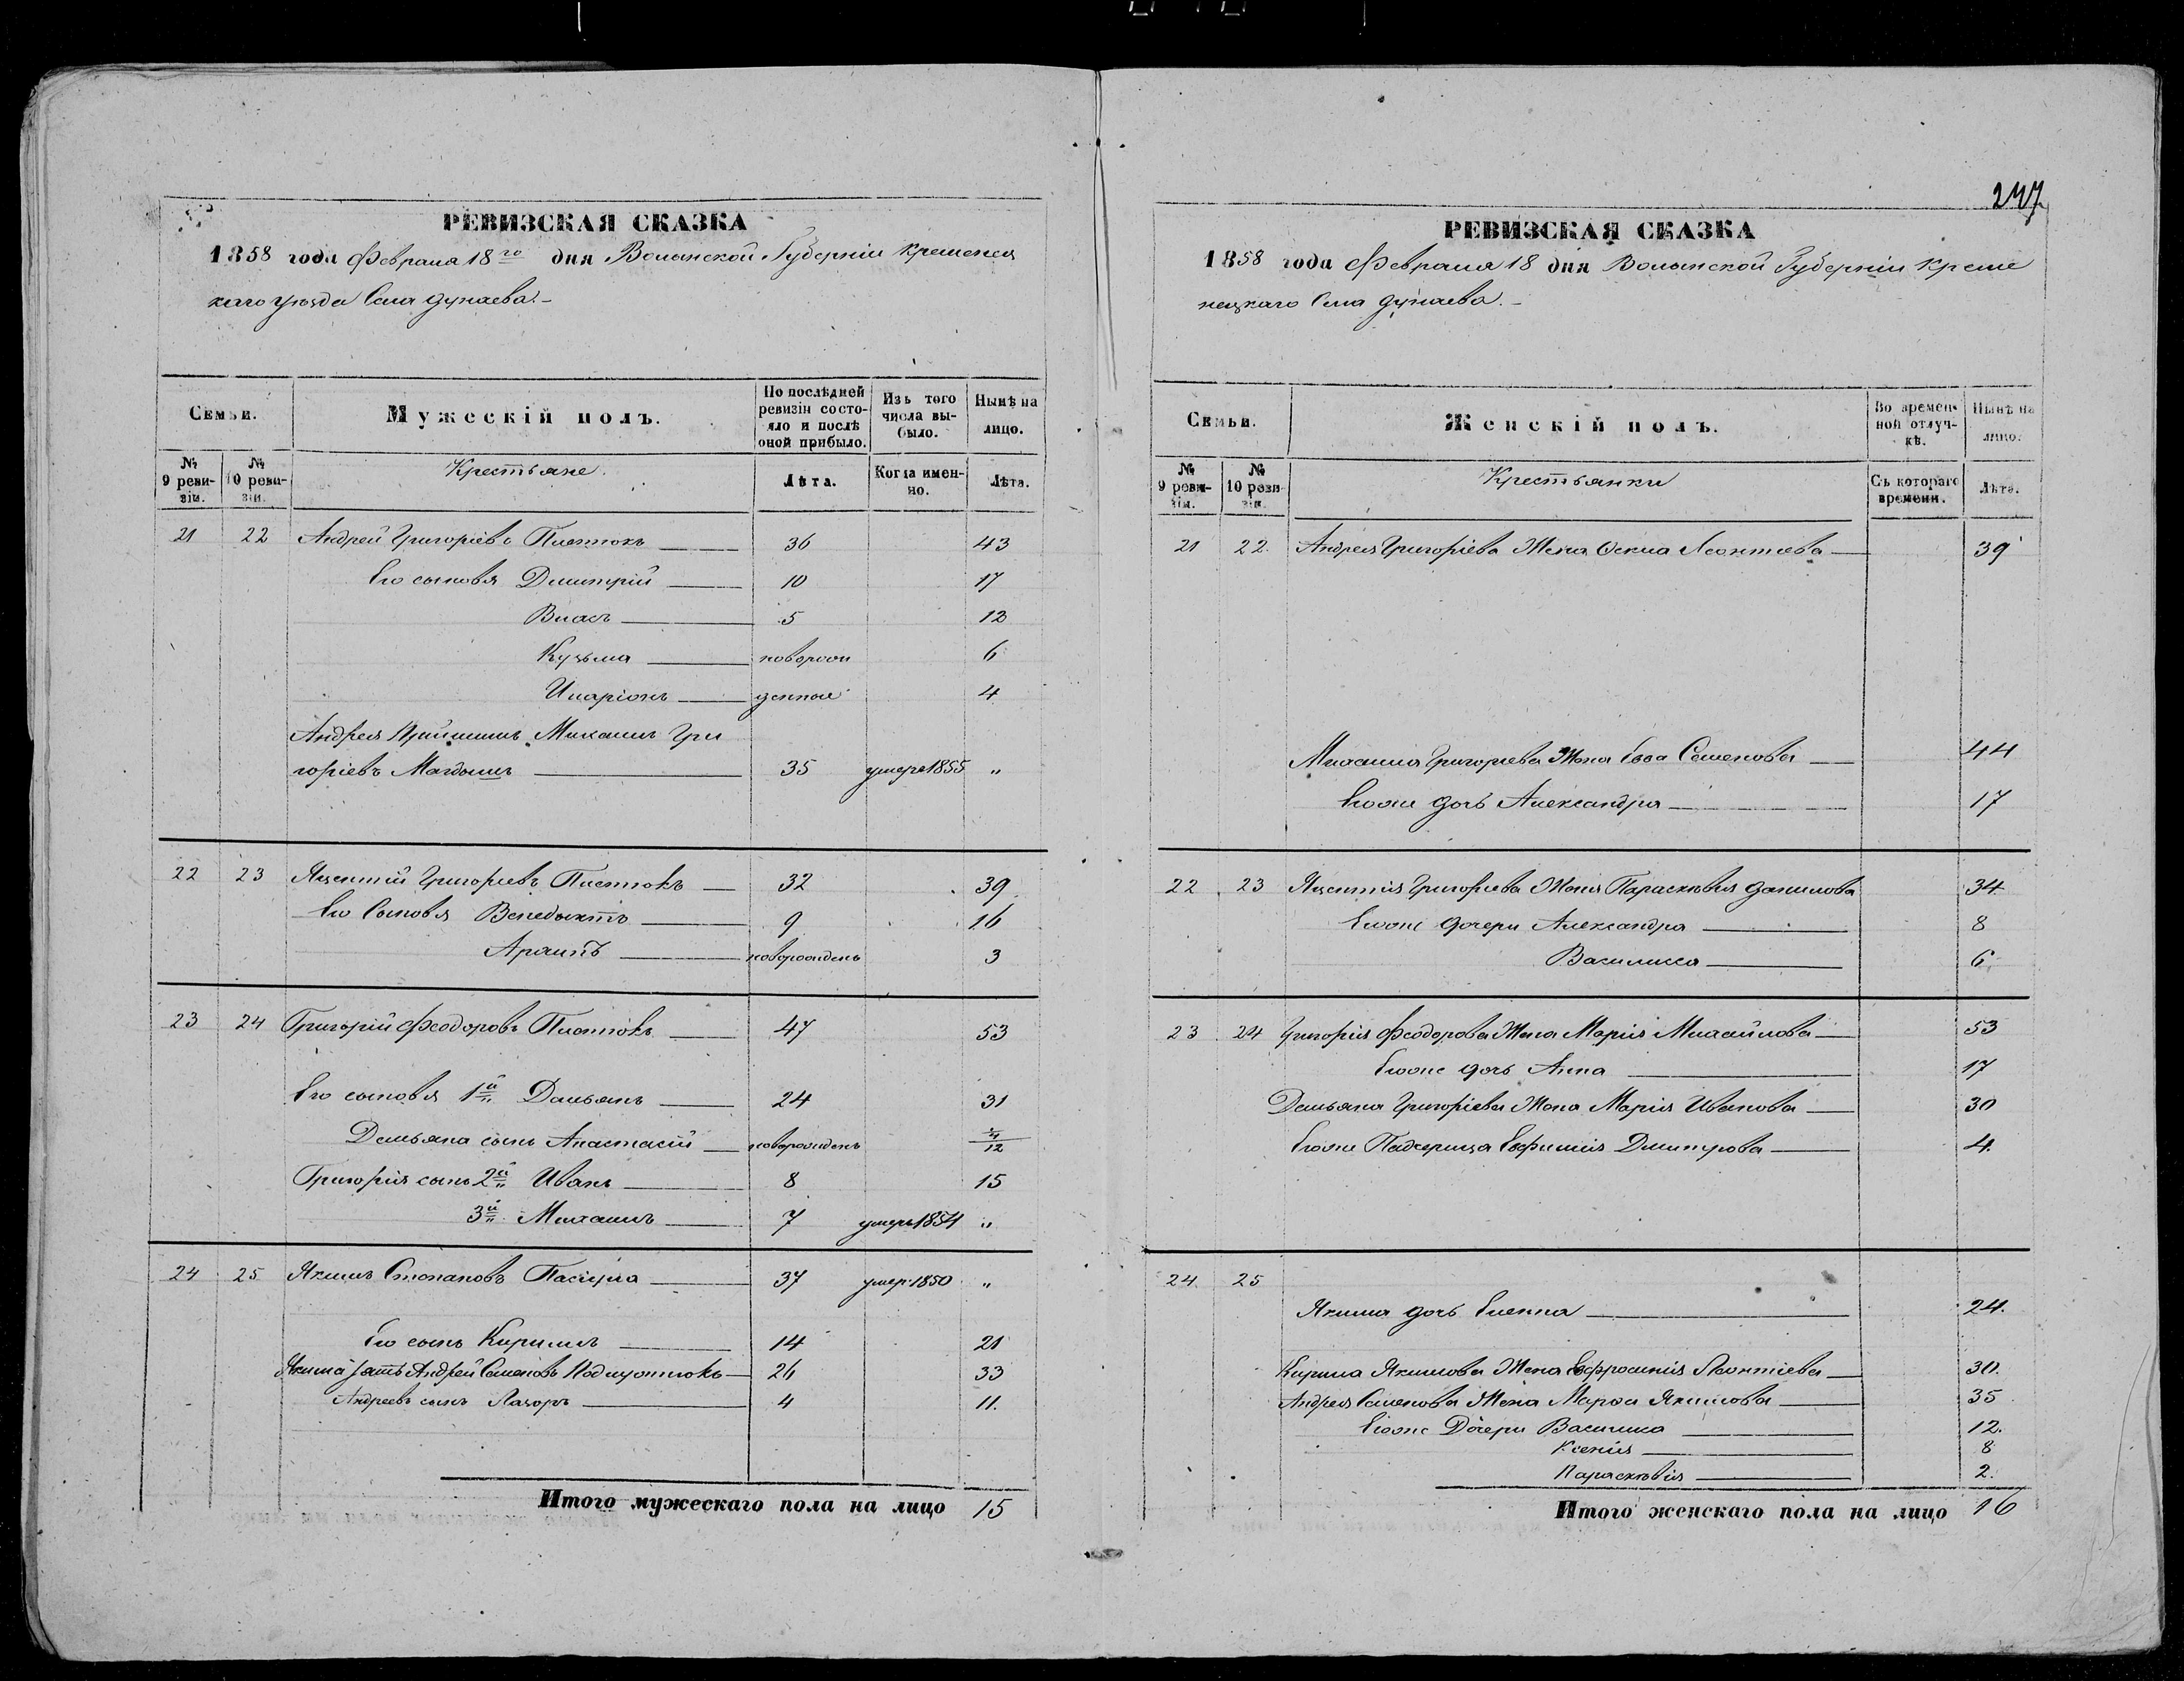 РЕВИЗСКАЯ СКАЗКА
1858 года Февраля 18го дня Волынской Губерніи Кременец
каго уѣзда Села Дунаева.
Семьи.
Мужескій полъ.
По послѣдней ревизіи состояло и послѣ оной прибыло.
Изъ того числа выбыло.
Нынѣ на лицо.
№ 9 ревизіи.
№ 10 ревизіи.
Крестьяне.
Лѣта.
Когда именно.
Лѣта.
21 22 Андрей Григоріевъ 36 43
Его сыновя Дмитрій 10 17
Власъ 5 12
Кузьма новорож 6
Иларіонъ денные 4
Андрея Михаилъ Гри
горіевъ 35 умеръ 1855 "
22 23 Яцентій Григорьевъ 32 39
Его Сыновя Венедыктъ 9 16
новорожденъ 3
23 24 Григорій Феодоровъ 47 53
Его сыновя 1й Демьянъ 24 31
Демьяна сынъ Анастасій новорожденъ 4/12
Григорія сынъ 2й Иванъ 8 15
3й Михаилъ 7 умеръ 1854 "
24 25 Якимъ Степановъ 37 умер. 1850 "
Его сынъ Кирилъ 14 21
Якима зять Андрей Семеновъ 26 33
Андреевъ сынъ Лазоръ 4 11.
Итого мужескаго пола на лицо 15
247
РЕВИЗСКАЯ СКАЗКА
1858 года Февраля 18 дня Волынской Губерніи Креме
нецкаго Села Дунаева.
Семьи.
Женскій полъ.
Во временной отлучкѣ.
Нынѣ на лицо.
№ 9 ревизіи.
№ 10 ревизіи.
Крестьянки
Съ котораго времени.
Лѣта.
21 22. Андрея Григоріева Жена Леонтиева 39
Михаила Григорьева Жена Ева Семенова 44
Егоже дочь Александра 17
22 23 Яцентія Григорьева Жена Параскѣвія Данилова 34
Егоже дочери Александра 8
Василиса 6
23 24 Григорія Феодорова Жена Марія Михайлова 53
Егоже дочь Анна 17
Демьяна Григоріева Жена Марія Иванова 30
Егоже Падчерица Евфимія Дмитрова 4
24. 25
Якима дочь Еленна 24.
Кирила Якимова Жена Ефросинія Леонтіева 30.
Андрея Семенова Жена Марфа Якимова 35
Егоже Дочери Василиса 12.
Ксенія 8
Параскѣвія 2.
Итого женскаго пола на лицо 16